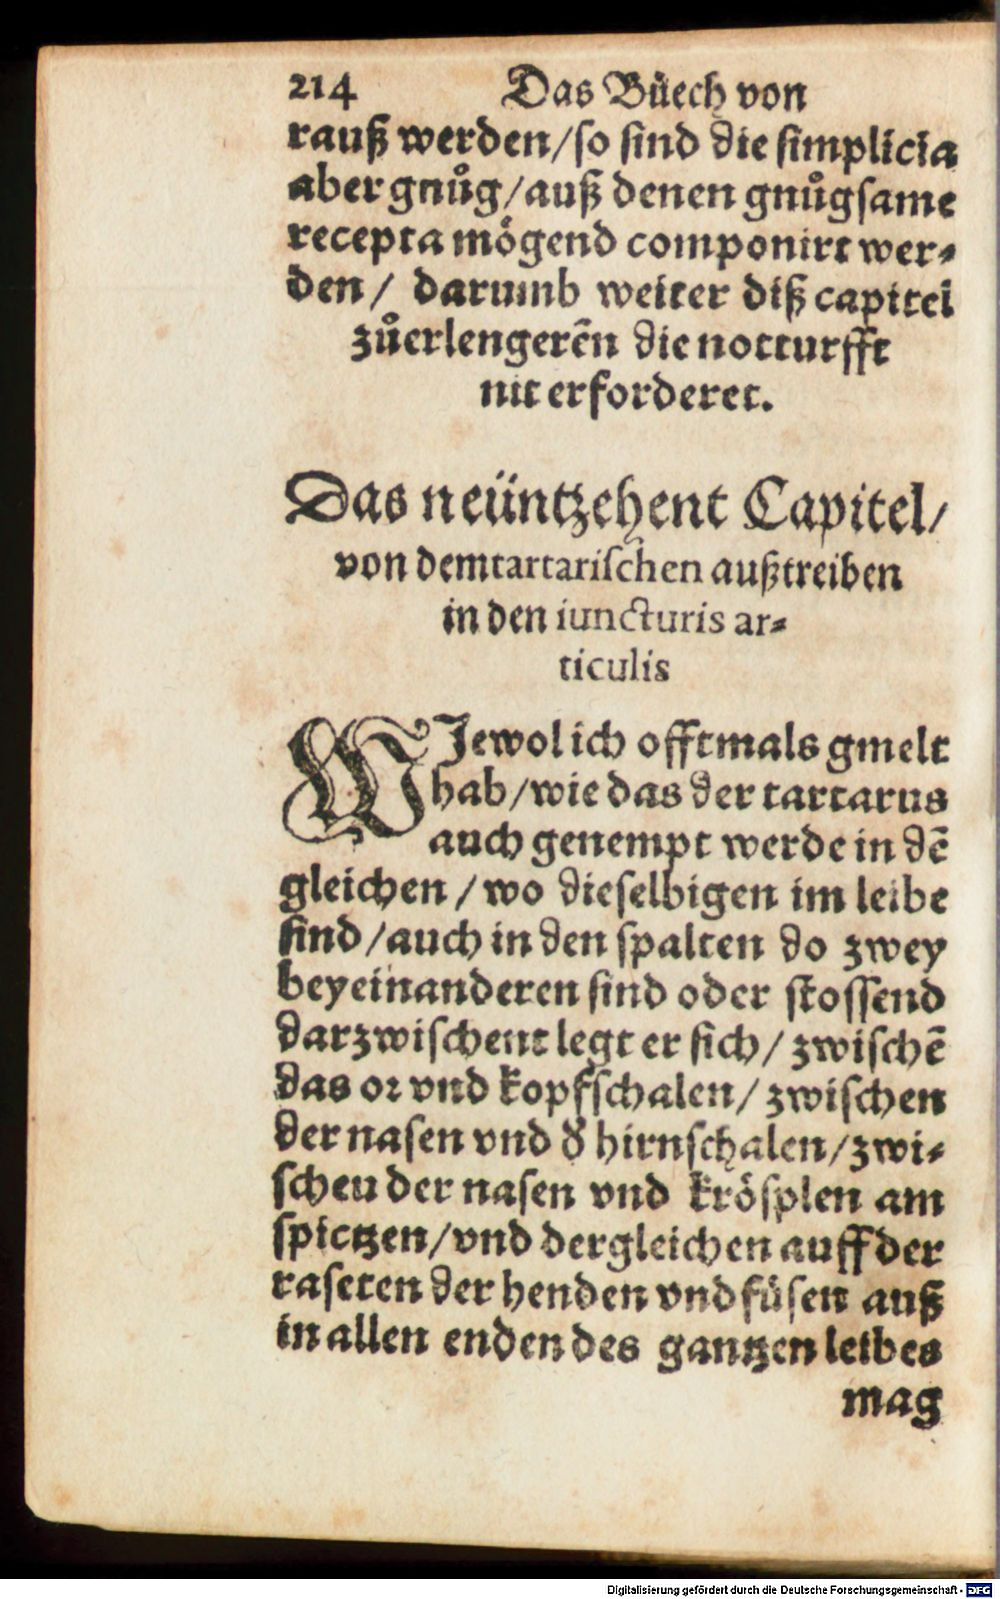 214 Das Büech von
rauß werden/so sind die simplicia
aber gnůg/auß denen gnůgsame
recepta mögend componirt wer⸗
den/ darumb weiter diß capitel
zůerlengerẽn die notturfft
nit erforderet.
Das neüntzehent Capitel/
von dem tartarischen außtreiben
in den iuncturis ar⸗
ticulis
WJewol ich offtmals gmelt
hab/wie das der tartarus
auch genempt werde in dẽ
gleichen/wo dieselbigen im leibe
sind/auch in den spalten do zwey
beyeinanderen sind oder stossend
darzwischent legt er sich/ zwischẽ
das or vnd kopfschalen/ zwischen
der nasen vnd d̕ hirnschalen/zwi⸗
scheu der nasen vnd krösplen am
spictzen/vnd dergleichen auff der
raseten der henden vnd füsen auß
in allen enden des gantzen leibes
mag
Digitalisierung gefördert durch die Deutsche Forschungsgemeinschaft - DFG